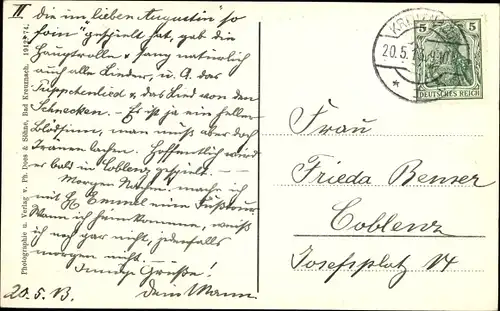 II.
die im "lieben Augustin" so
fein gespielt hat, gab die
Hauptrolle & sang natürlich
auch alle Lieder, u. A. das
Püppchenlied & das Lied von den
Schnecken. – Es ist ja ein heller
Blödsinn, man muß aber doch
Tränen lachen. Hoffentlich wird
er bald in Coblenz gespielt. –
Morgen Nachm. mache ich
mit Emmel eine Fußtour.
Wann ich heim komme, weiß
ich noch gar nicht, jedenfalls
morgen nicht. –
Innige Grüße!
20.5.13. Dein Mann
Photographie u. Verlag v. Ph. Dees & Söhne, Bad Kreuznach. 1912 * 74.
20.5.
5 5
DEUTSCHES REICH
Frau
Frieda Benser
Coblenz
Josefsplatz 14